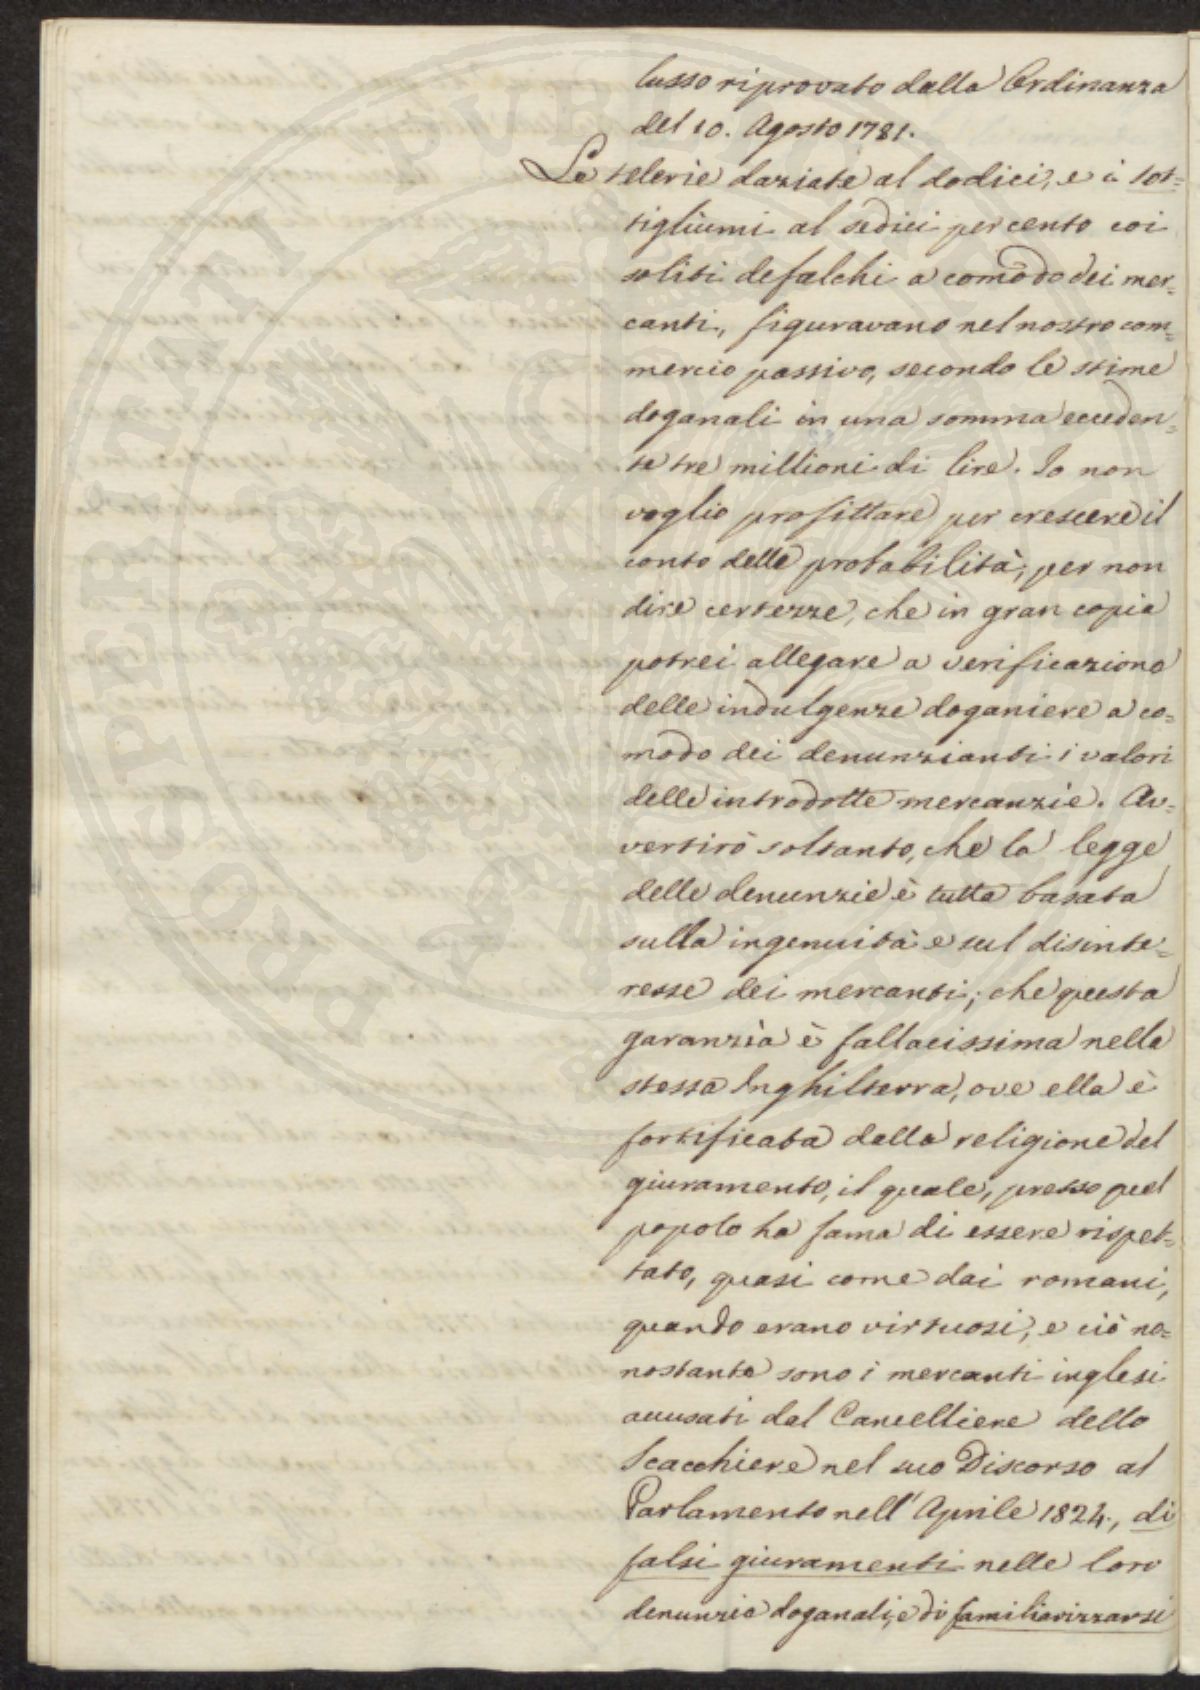 lusso riprovato dalla Ordinanza
del 10. Agosto 1781.
Le telerie daziate al dodici, e i sot=
tigliumi al sedici per cento coi
soliti defalchi a comodo dei mer=
canti, figuravano nel nostro com=
mercio passivo, secondo le stime
doganali in una somma ecceden=
te tre millioni di lire. Io non
voglio profittare per crescere il
conto delle probabilità, per non
dire certezze, che in gran copia
potrei allegare a verificazione
delle indulgenze doganiere a co=
modo dei denunzianti i valori
delle introdotte mercanzie. Av=
vertirò soltanto, che la legge
delle denunzie è tutta basata
sulla ingenuità e sul disinte=
resse dei mercanti; che questa
garanzia è fallacissima nella
stessa Inghilterra, ove ella è
fortificata dalla religione del
giuramento, il quale, presso quel
popolo ha fama di essere rispet=
tato, quasi come dai romani,
quando erano virtuosi, e ciò no=
nostante sono i mercanti inglesi
accusati dal Cancelliere dello
Scacchiere nel suo Discorso al
Parlamento nell' Aprile 1824, di
falsi giuramenti nelle loro
denunzie doganali, e di familiarizzarsi
PROSPERITATI PUBLICAE